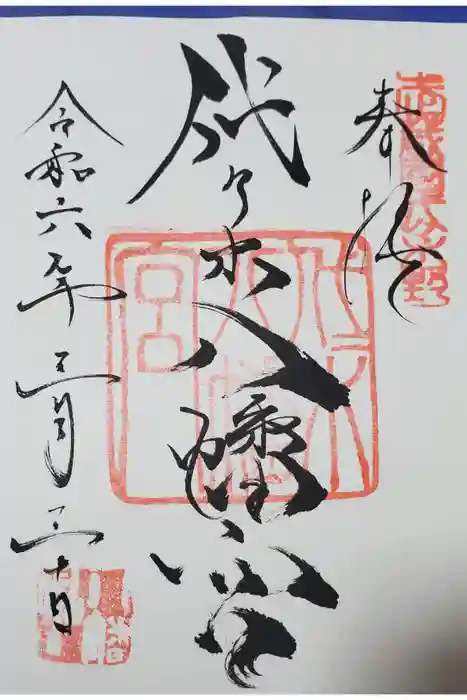 奉拝
代々木八幡宮
令和六年三月三十日
代々木八幡宮